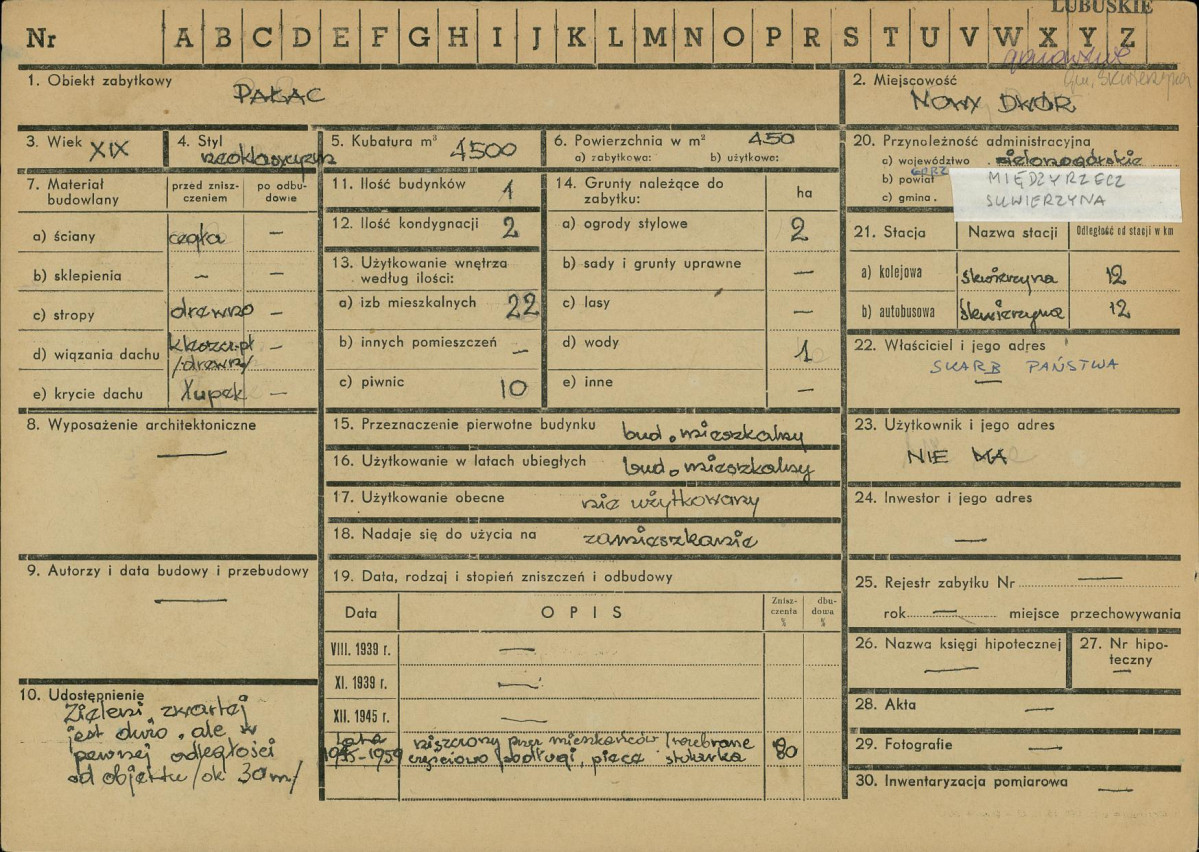 LUBUSKIE
Nr A B C D E F G H I J K L M N O P R S T U V W X Y Z
gm. Skwierzyna
1. Obiekt zabytkowy
PAŁAC
2. Miejscowość
NOWY DWÓR
3. Wiek XIX
4. Styl neoklasycyzm
5. Kubatura m³ 4500
6. Powierzchnia w m² 450
a) zabytkowa: b) użytkowo:
7. Materiał budowlany
przed zniszczeniem
po odbudowie
a) ściany cegła —
b) sklepienia — —
c) stropy drewno —
d) wiązania dachu /drewn/ —
e) krycie dachu łupek —
8. Wyposażenie architektoniczne
—
9. Autorzy i data budowy i przebudowy
—
10. Udostępnienie
Zieleni zwartej
jest dużo, ale w
pewnej odległości
od objektu /ok 30m/
11. Ilość budynków 1
12. Ilość kondygnacji 2
13. Użytkowanie wnętrza
według ilości:
a) izb mieszkalnych 22
b) innych pomieszczeń —
c) piwnic 10
14. Grunty należące do
zabytku: ha
a) ogrody stylowe 2
b) sady i grunty uprawne —
c) lasy —
d) wody 1
e) inne —
15. Przeznaczenie pierwotne budynku bud. mieszkalny
16. Użytkowanie w latach ubiegłych bud. mieszkalny
17. Użytkowanie obecne nie użytkowany
18. Nadaje się do użycia na zamieszkanie
19. Data, rodzaj i stopień zniszczeń i odbudowy
Data OPIS Zniszczenia % dbudowa %
VIII. 1939 r. —
XI. 1939 r. —
XII. 1945 r. —
Lata niszczony przez mieszkańców /rozebrane
1945-1959 częściowo podłogi, piece stolarka 80
20. Przynależność administracyjna
c) województwo zielonogórskie
GORZ
b) powiat MIĘDZYRZECZ
c) gmina. SKWIERZYNA
21. Stacja Nazwa stacji Odległość od stacji w km
a) kolejowa Skwierzyna 12
b) autobusowa Skwierzyna 12
22. Właściciel i jego adres
SKARB PAŃSTWA
—
23. Użytkownik i jego adres
NIE MA
24. Inwestor i jego adres
—
25. Rejestr zabytku Nr —
rok — miejsce przechowywania
26. Nazwa księgi hipotecznej
—
27. Nr hipoteczny
—
28. Akta —
29. Fotografie —
30. Inwentaryzacja pomiarowa —